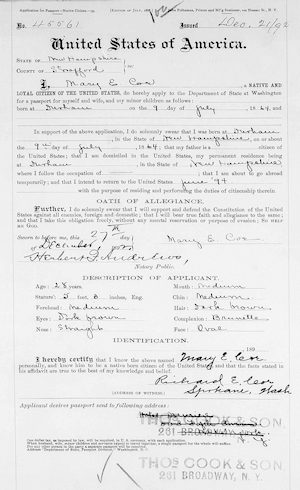 No. 45561 Issued Dec. 21/92
United States of America.
STATE OF New Hampshire
COUNTY OF Strafford
I, Mary E Coe, a NATIVE AND
LOYAL CITIZEN OF THE UNITED STATES, do hereby apply to the Department of State at Washington
for a passport for myself and wife, and my minor children as follows:
born at Durham on the 9 day of July, 1864, and
In support of the above application, I do solemnly swear that I was born at Durham
in the State of New Hampshire, on or about the
9th day of July, 1864; that my father is a citizen
of the United States; that I am domiciled in the United States, my permanent residence being
at Durham, in the State of New Hampshire
where I follow the occupation of ; that I am about to go abroad
temporarily; and that I intend to return to the United States June '94
with the purpose of residing and performing the duties of citizenship therein.
OATH OF ALLEGIANCE.
Further, I do solemnly swear that I will support and defend the Constitution of the United
States against all enemies, foreign and domestic; that I will bear true faith and allegiance to the same; and
that I take this obligation freely, without any mental reservation or purpose of evasion: SO HELP
ME GOD.
Sworn to before me, this 27th day
of December, 189
Mary E. Coe
Notary Public.
DESCRIPTION OF APPLICANT.
Age: 28 years. Mouth: Medium
Stature: 5 feet, 3 inches, Eng. Chin: Medium
Forehead: Medium Hair: Dark brown
Eyes: Dark brown Complexion: Brunette
Nose: Straight Face: Oval
IDENTIFICATION.
189
I hereby certify that I know the above named Mary E. Coe
personally, and know him to be a native born citizen of the United States, and that the facts stated in
his affidavit are true to the best of my knowledge and belief.
Richard E. Coe
[ADDRESS OF WITNESS.] Spokane, Wash
Applicant desires passport sent to following address:
THOS COOK & SON.
261 BROADWAY, N.Y.
THOS COOK & SON.
261 BROADWAY, N.Y.